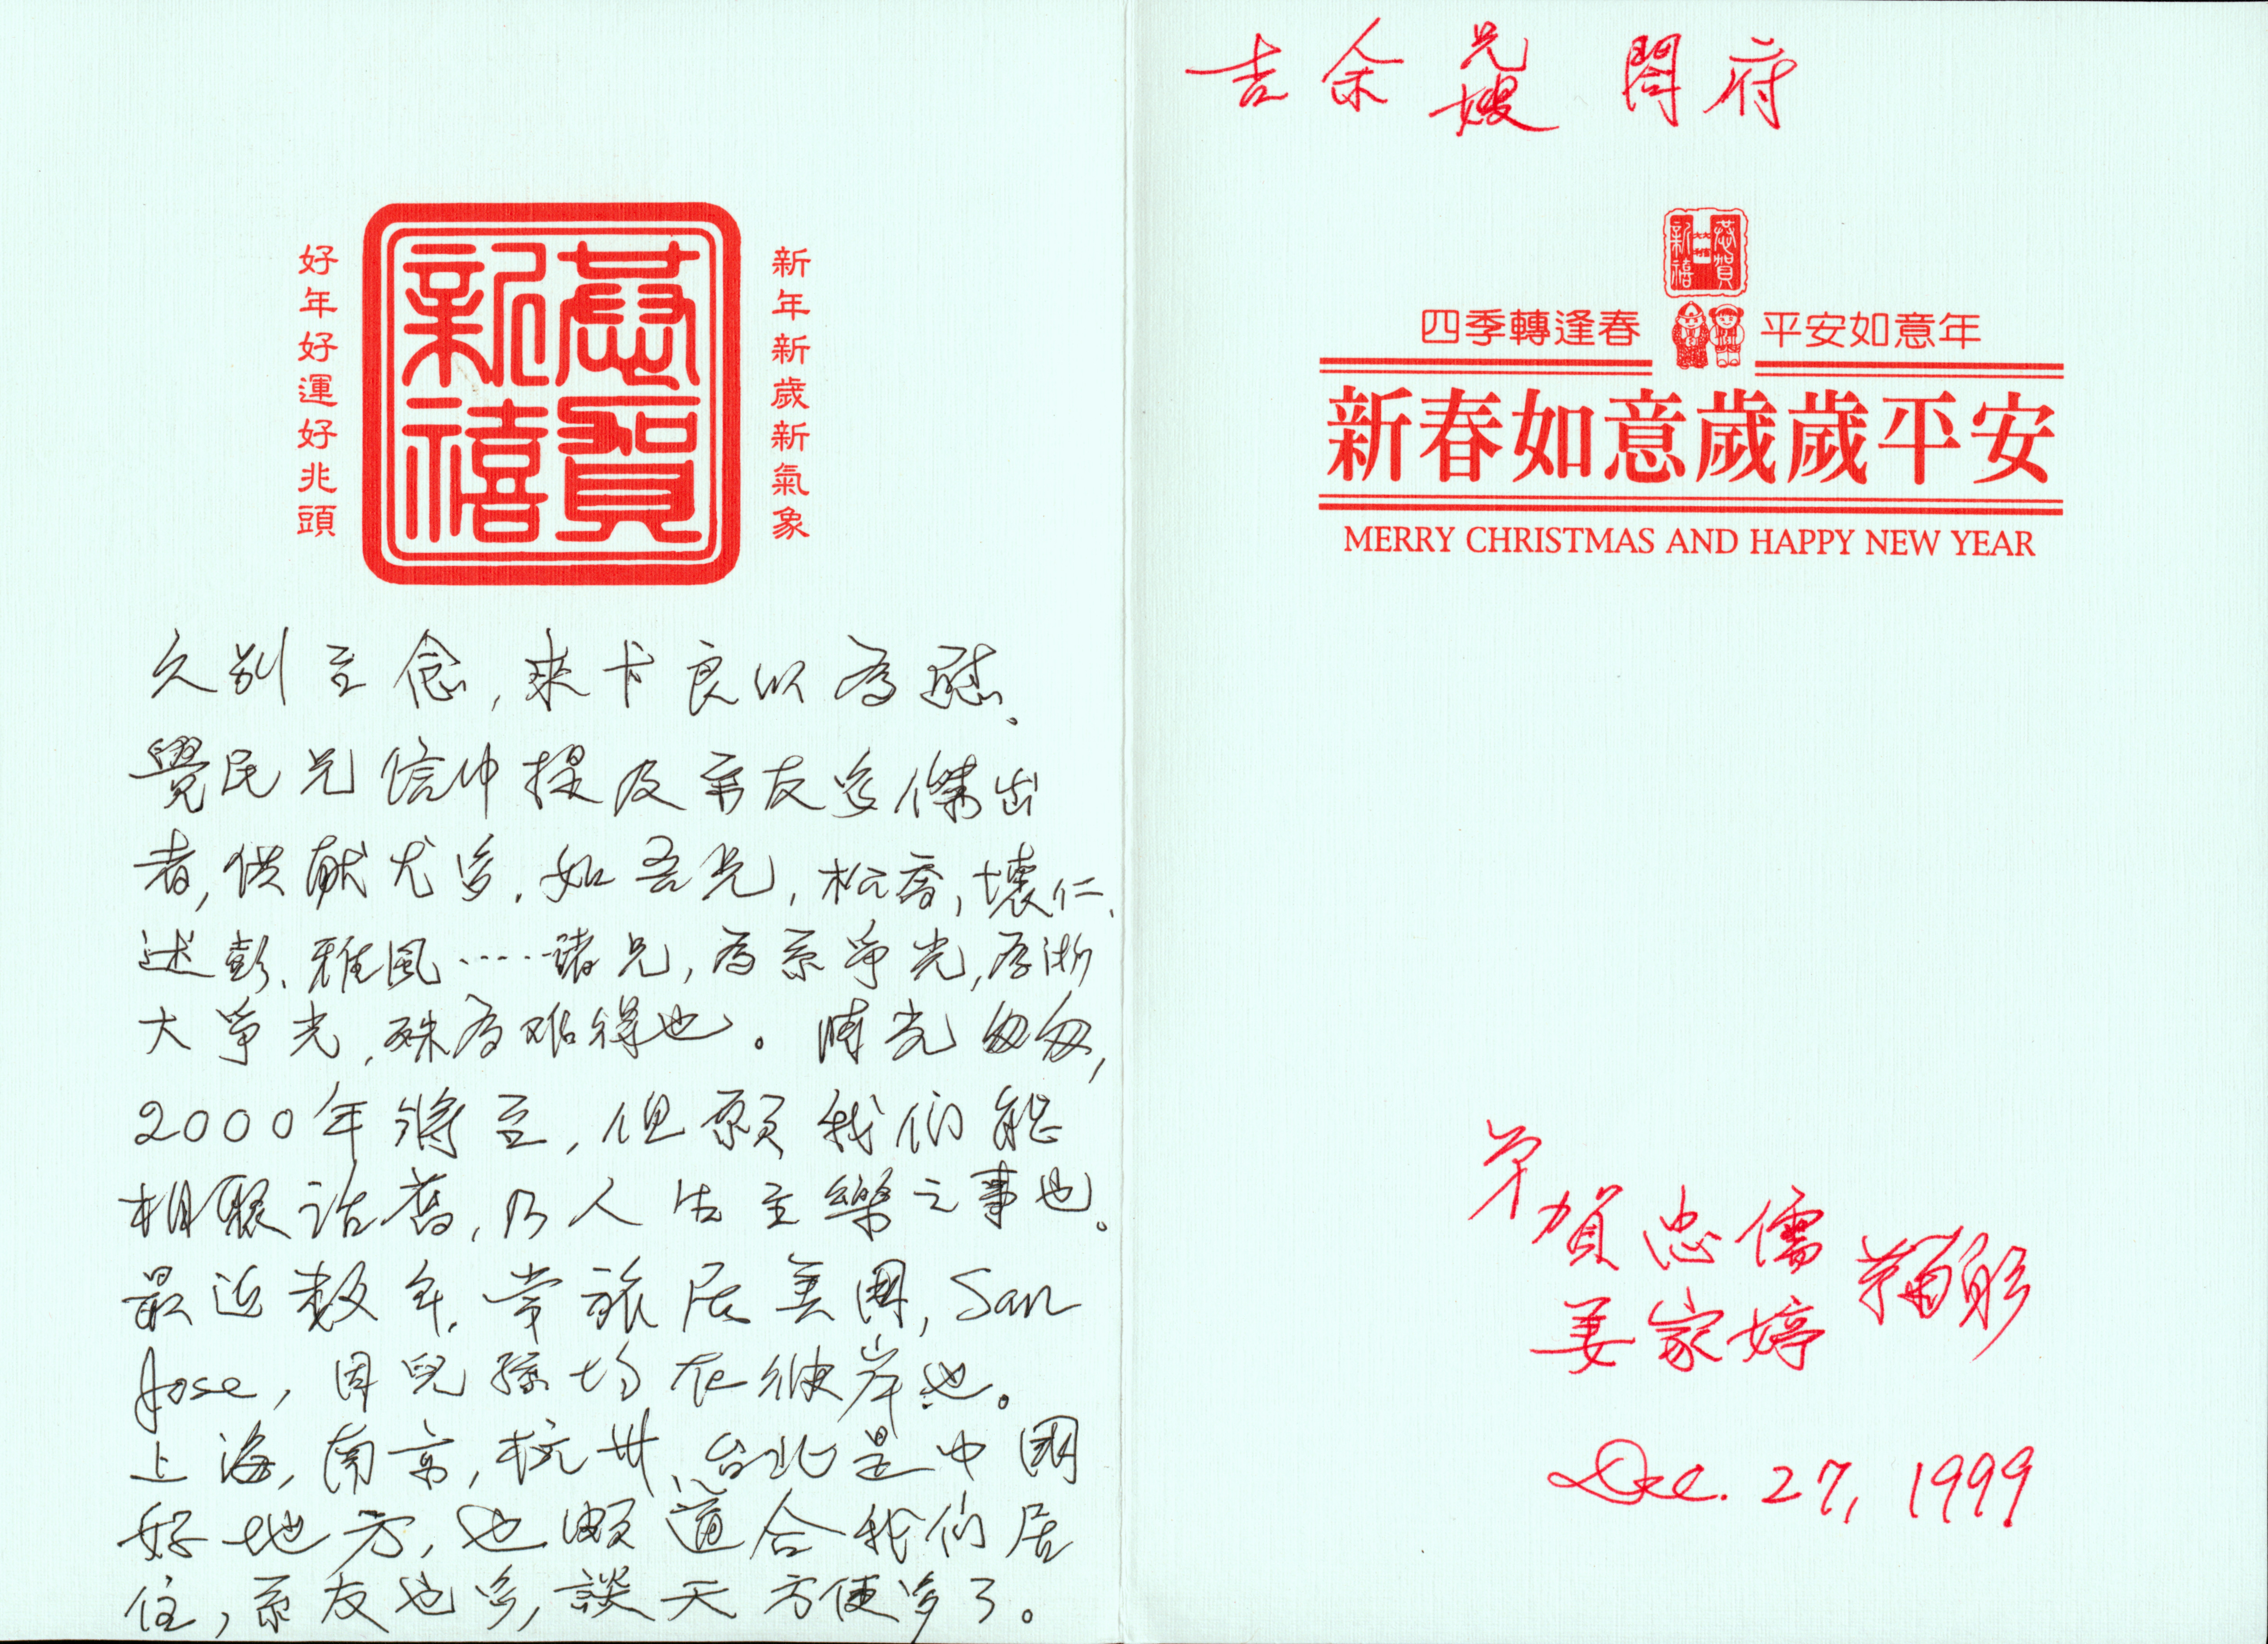 恭賀新禧
新年新歲新氣象
好年好運好兆頭
久别至念,來卡良以為慰、
覺民兄信中提及系友多傑出
者,供献尤多.如吾兄,松喬,壞仁、
述彭、雅風……諸兄,為系爭光,為浙
大爭光,殊為难得也。時光匆匆,
2000年將至,但願我们能
相聚話舊,乃人生至樂之事也。
最近数年,常旅居美國,San
Jose,因兒孫均在彼岸也。
上海,南京,杭州、台北是中國
好地方,也頗適合我们居
住,系友也多,談天方便多了。
吉余兄嫂 閤府
恭賀新禧
四季轉逢春 平安如意年
新春如意歲歲平安
MERRY CHRISTMAS AND HAPPY NEW YEAR
弟賀忠儒
姜家婷 鞠躬
Dec. 27, 1999